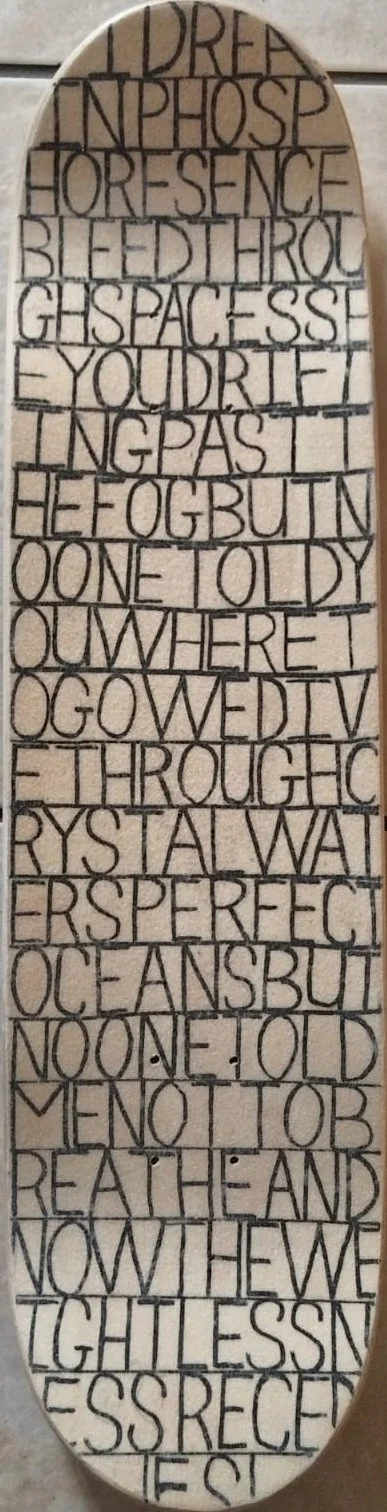 IDREA
INPHOSP
HORESENCE
BLEEDTHROU
GHSPACESSE
EYOUDRIFT
INGPASTT
HEFOGBUTN
OONETOLDY
OUWHERET
OGOWEDIV
ETHROUGHC
RYSTALWAT
ERSPERFECT
OCEANSBUT
NOONETOLD
MENOTTOB
REATHEAND
NOWTHEWE
IGHTLESSN
ESSRECED
IESI